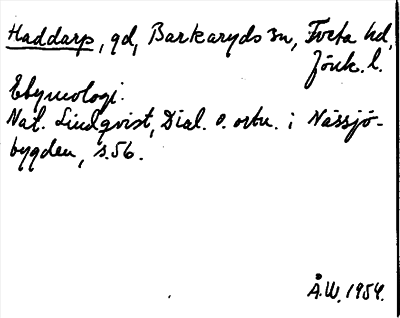 Haddarp, gd, Barkaryds sn, Tveta hd,
Jönk. l.
Etymologi:
Nat. Lindqvist, Dial. o. ortn. i Nässjö-
bygden, s. 56.
Å.W. 1954.